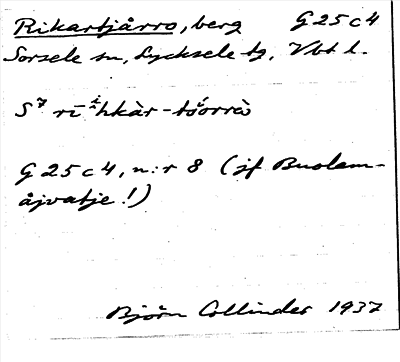 Rikartjårro, berg G25c4
Sorsele sn, Lycksele tg, Vbt l.
S⁷
G25c4, n:r 8 (jf Buolem-
åjvatje!)
Björn Collinder 1937